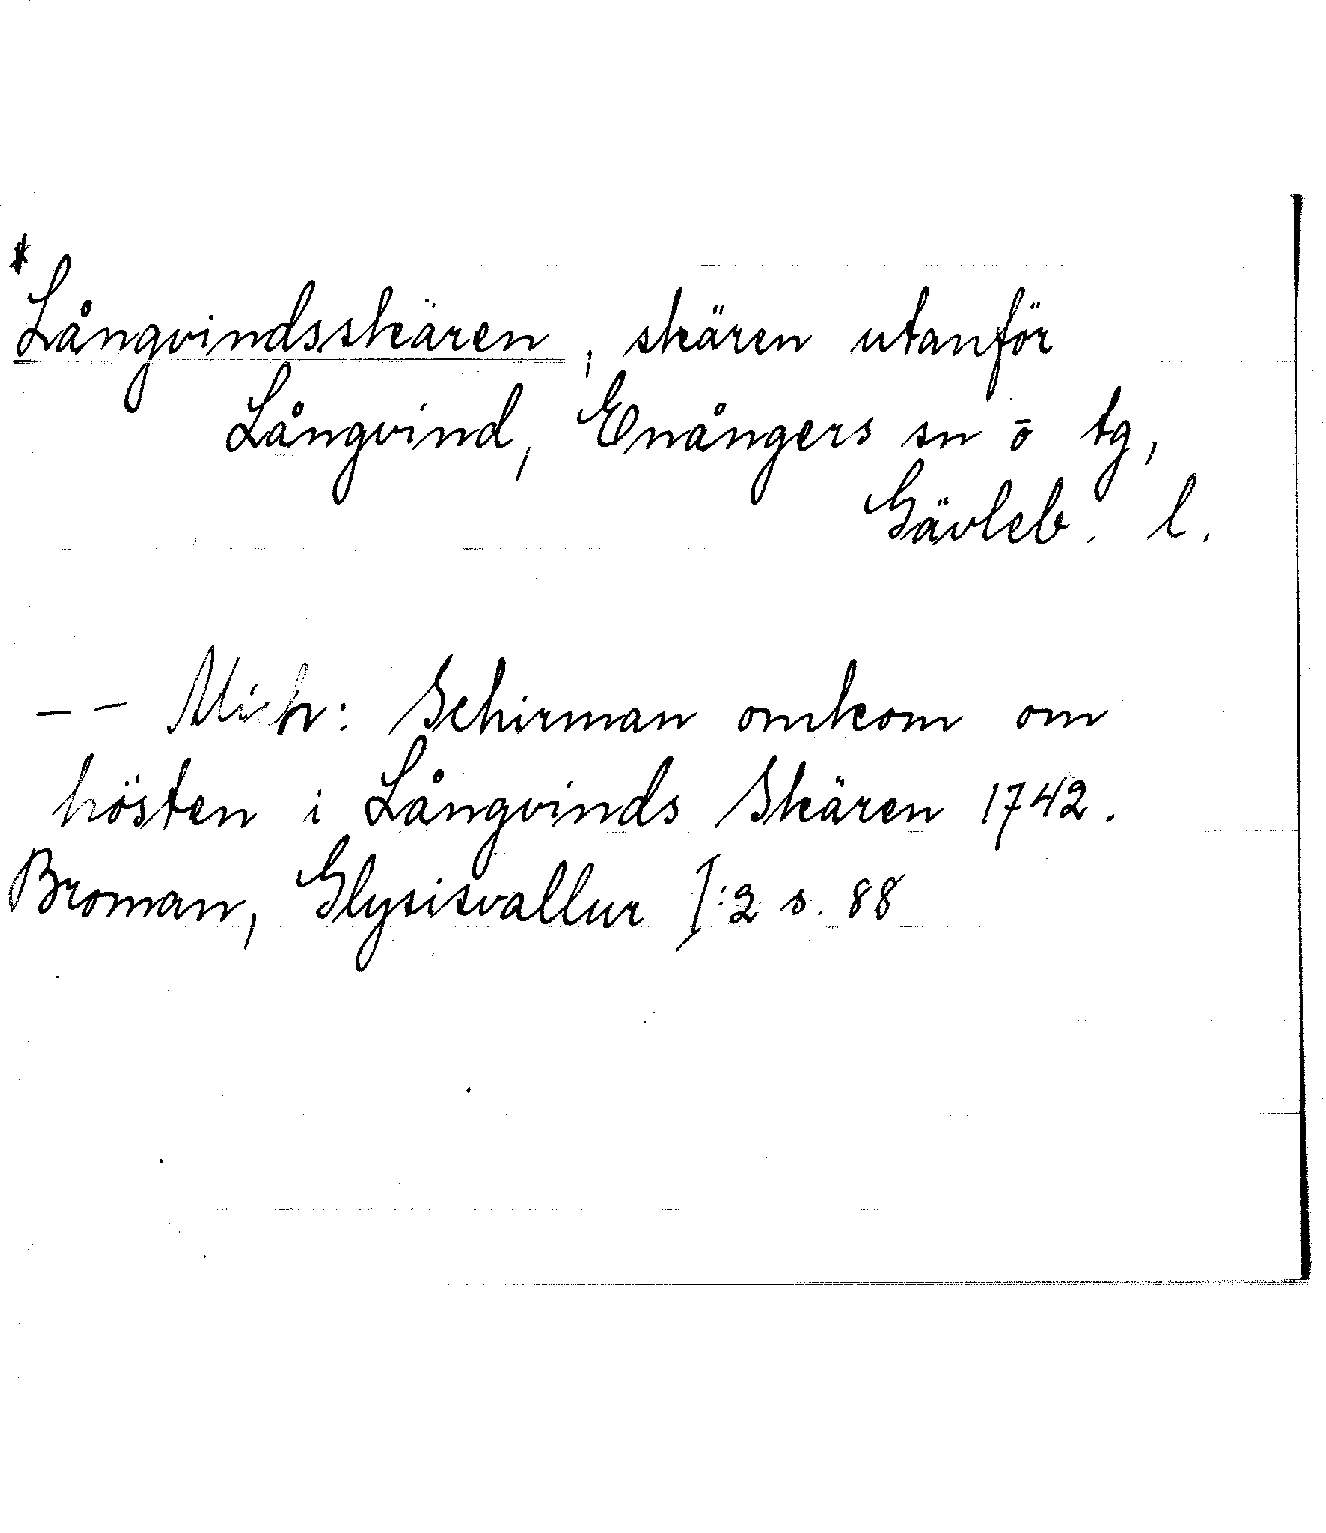 *
Långvindsskären, skären utanför
Långvind, Enångers sn ō tg,
Gävleb. l.
-- Mich: Schirman omkom om
hösten i Långvinds Skären 1742.
Broman, Glysisvallur I:2 s. 88